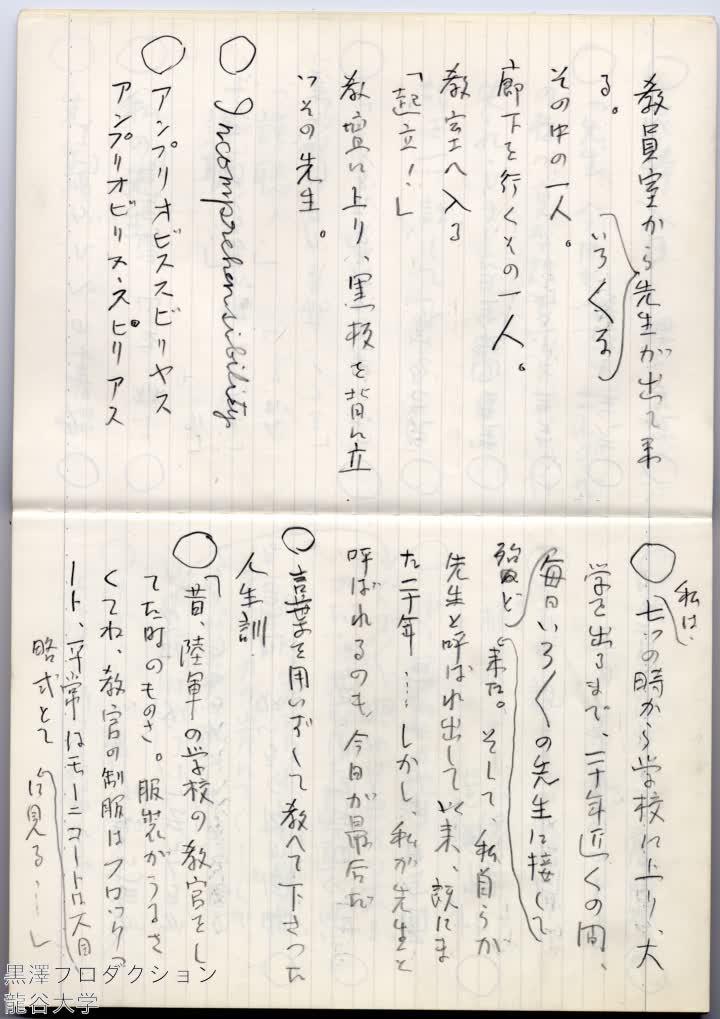 教員室から先生が出て来
る。
いろくな
その中の一人。
廊下を行くその一人。
教室へ入る
「起立！」
教壇に上り、黒板を背に立
ついその先生。
○ Incomprehensibility
○ アンプリオビススビリヤス
アンプリオビリス・スピリアス
私は、
○ 七つの時から学校に上り、大
学を出るまで、二十年近くの間、
殆ど
毎日いろ〱の先生に接して
来た。そして、私自らが
先生と呼ばれ出して以来、既にま
た二十年……しかし、私が先生と
呼ばれるのも、今日が最后だ
○ 言葉を用いずして教へて下さつた
人生訓
○ 「昔、陸軍の学校の教官をし
てた時のものさ。服装がうるさ
くてね、教官の制服はフロックコ
ート、平常はモーニングコート
略式として 見る……」
黒澤プロダクション
龍谷大学